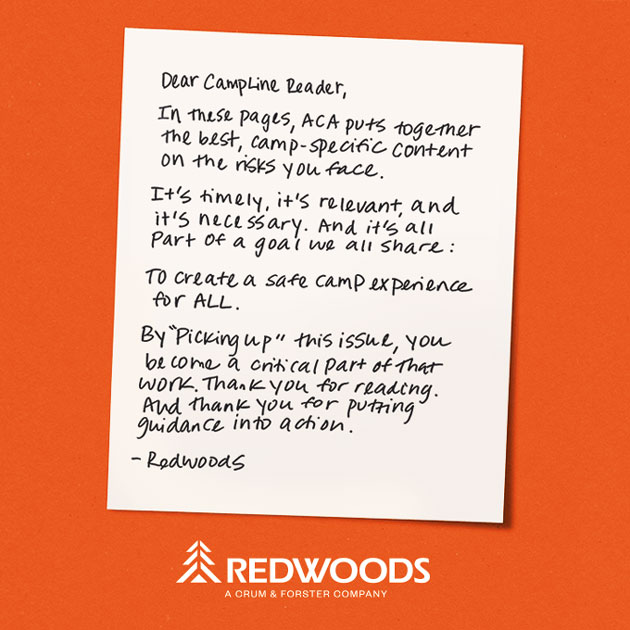 Dear CampLine Reader,
In these pages, ACA puts together
the best, camp-specific content
on the risks you face.
It's timely, it's relevant, and
it's necessary. And it's all
part of a goal we all share:
To create a safe camp experience
for ALL.
By "picking up" this issue, you
become a critical part of that
work. Thank you for reading.
And thank you for putting
guidance into action.
- Redwoods
REDWOODS
A CRUM & FORSTER COMPANY